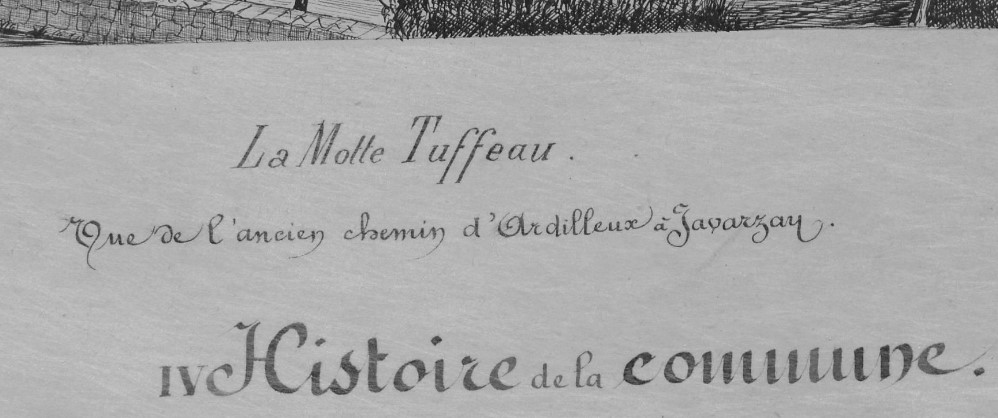 La Motte Tuffeau.
Vue de l'ancien chemin d'Ardilleux à Javarzay.
IV Histoire de la commune.